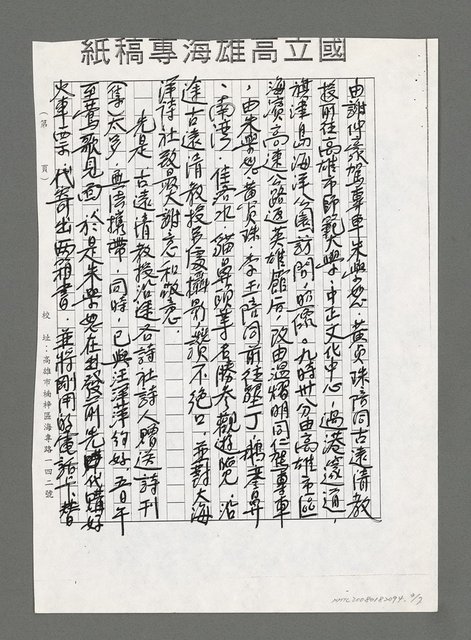 國立高雄海專稿紙
由謝仲豪駕車、朱學恕、黃貞珠陪同古遠清教
授前往高雄市師範大學、中正文化中心、過港隧道、
旗津島海洋公園訪問、照像。九時卅分由高雄市區
海濱高速公路返英雄館后，改由溫耀明同仁駕專車
，由朱學恕黃貞珠、李玉陪同前往墾丁、鵝鑾鼻
、南灣、佳洛水、貓鼻頭等名勝大觀遊覽，沿
途古遠清教授照像攝影讚不絕口，並對大海
洋詩社致最大謝意和敬意。
先是古遠清教授沿途各詩社詩人贈送詩刊
書太多，無法攜帶，同時，已與汪洋洋約好五日午
至鶯歌見面，於是朱學恕在出發前先代購好
火車票、代寄出兩箱書，並將剛用的電話卡、替
（第　　頁）
校址：高雄市楠梓區海專路一四二號
NMTL20080182094. 2/7